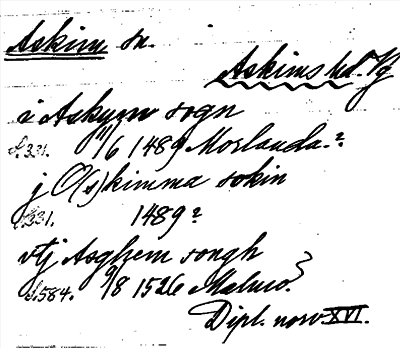 Askim sn.
Askims hd. Bg
i Askym sogn
S.331. 11/6 1489 Morlanda.?
j O(s)kimma sokin
S.331. 1489?
vtj Asghem songh
S.584. 9/8 1526 Malmö.
Dipl. norv XVI.